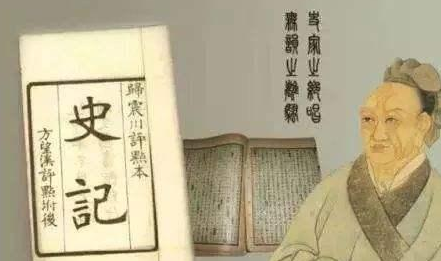 歸震川評點本
史記
方望溪評點附後
史家之絕唱
無韻之離騷